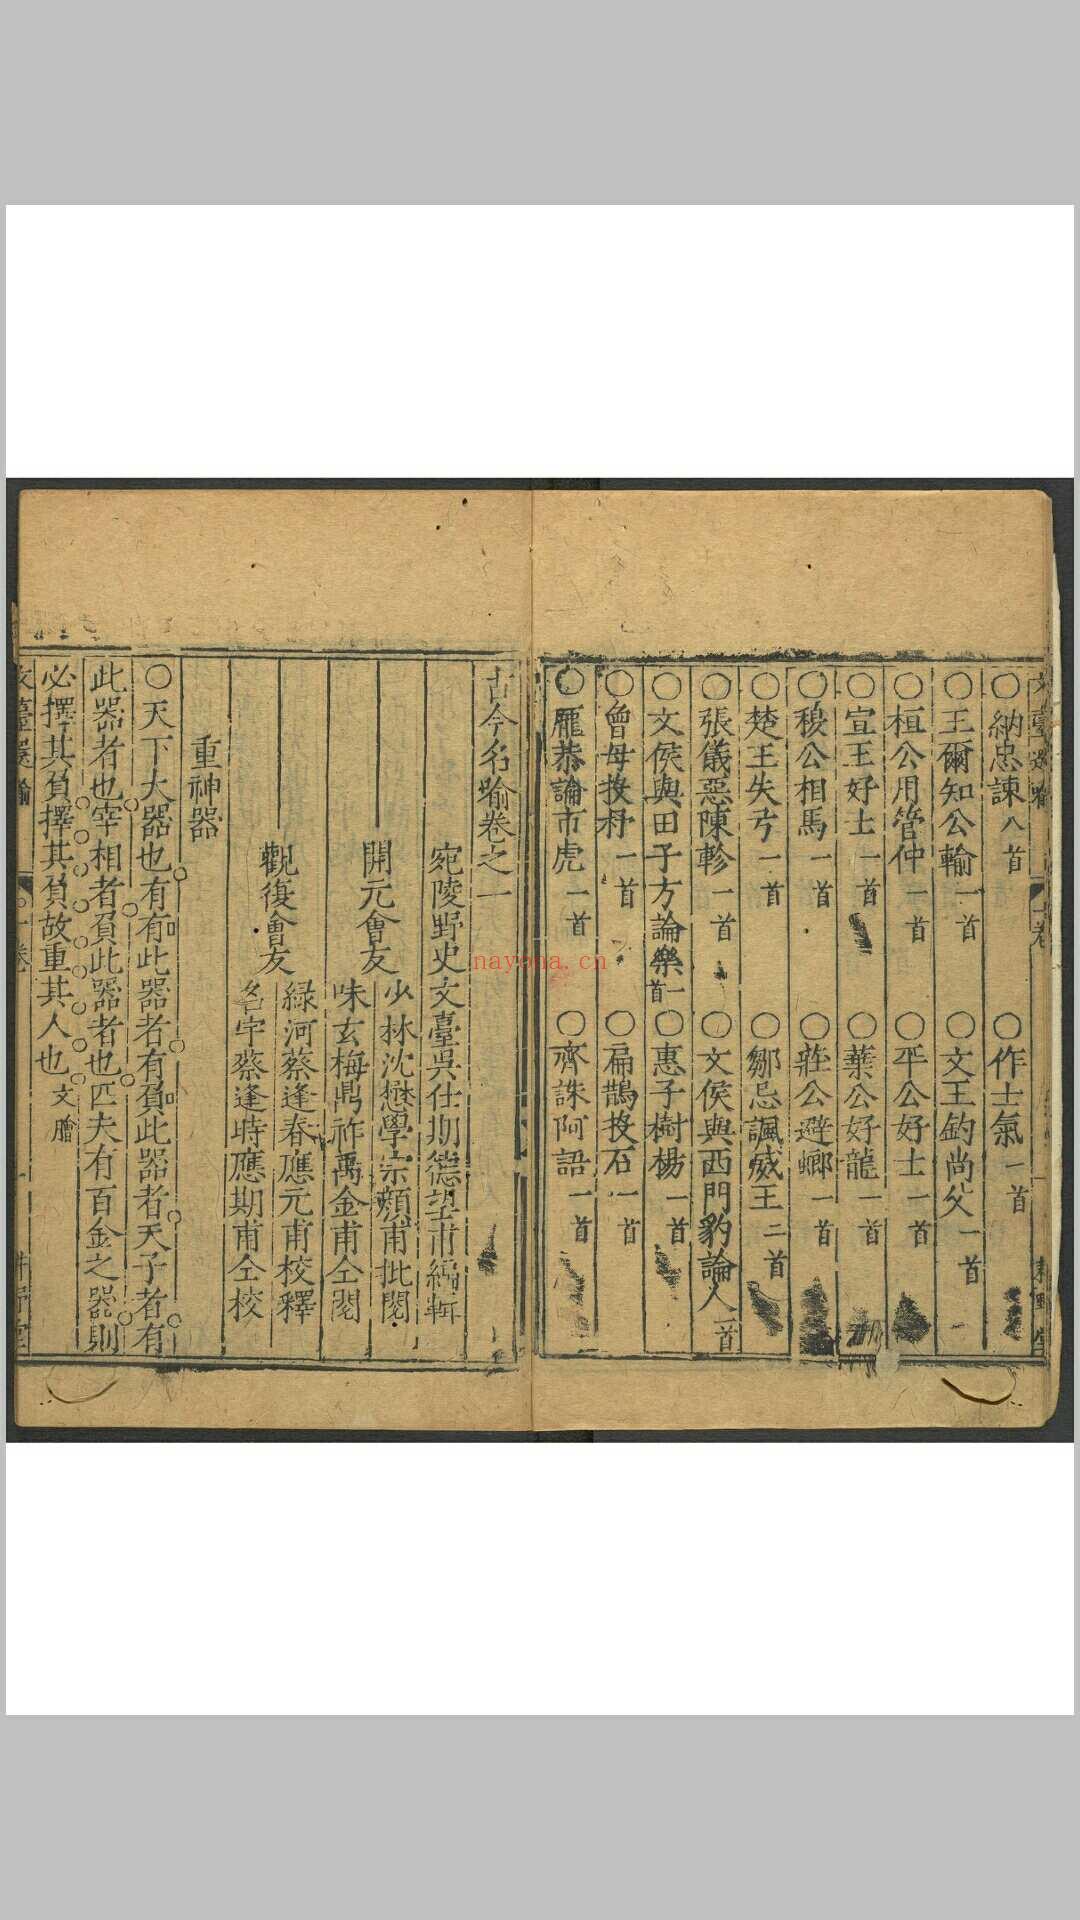 文臺選喻
一卷
○納忠諫八首
○作士氣一首
○王爾知公輸一首
○文王釣尚父一首
○桓公用管仲一首
○平公好士一首
○宣王好士一首
○葉公好龍一首
○穆公相馬一首
○莊公避螂一首
○楚王失弓一首
○鄒忌諷威王二首
○張儀惡陳軫一首
○文侯與西門豹論人一首
○文侯與田子方論樂一首
○惠子樹楊一首
○曾母投杼一首
○扁鵲投石一首
○龐恭論市虎一首
○齊誅阿語一首
古今名喻卷之一
宛陵野史文臺吳仕期德望甫編輯
開元會友
少林沈懋學宗顏甫批閱
味玄梅鼎祚禹金甫仝閱
觀復會友
綠河蔡逢春應元甫校釋
名宇蔡逢時應期甫仝校
重神器
○天下大器也有有此器者有負此器者天子者有
此器者也宰相者負此器者也匹夫有百金之器則
必擇其負擇其負故重其人也文膾
文臺選喻
一卷
nayona.cn